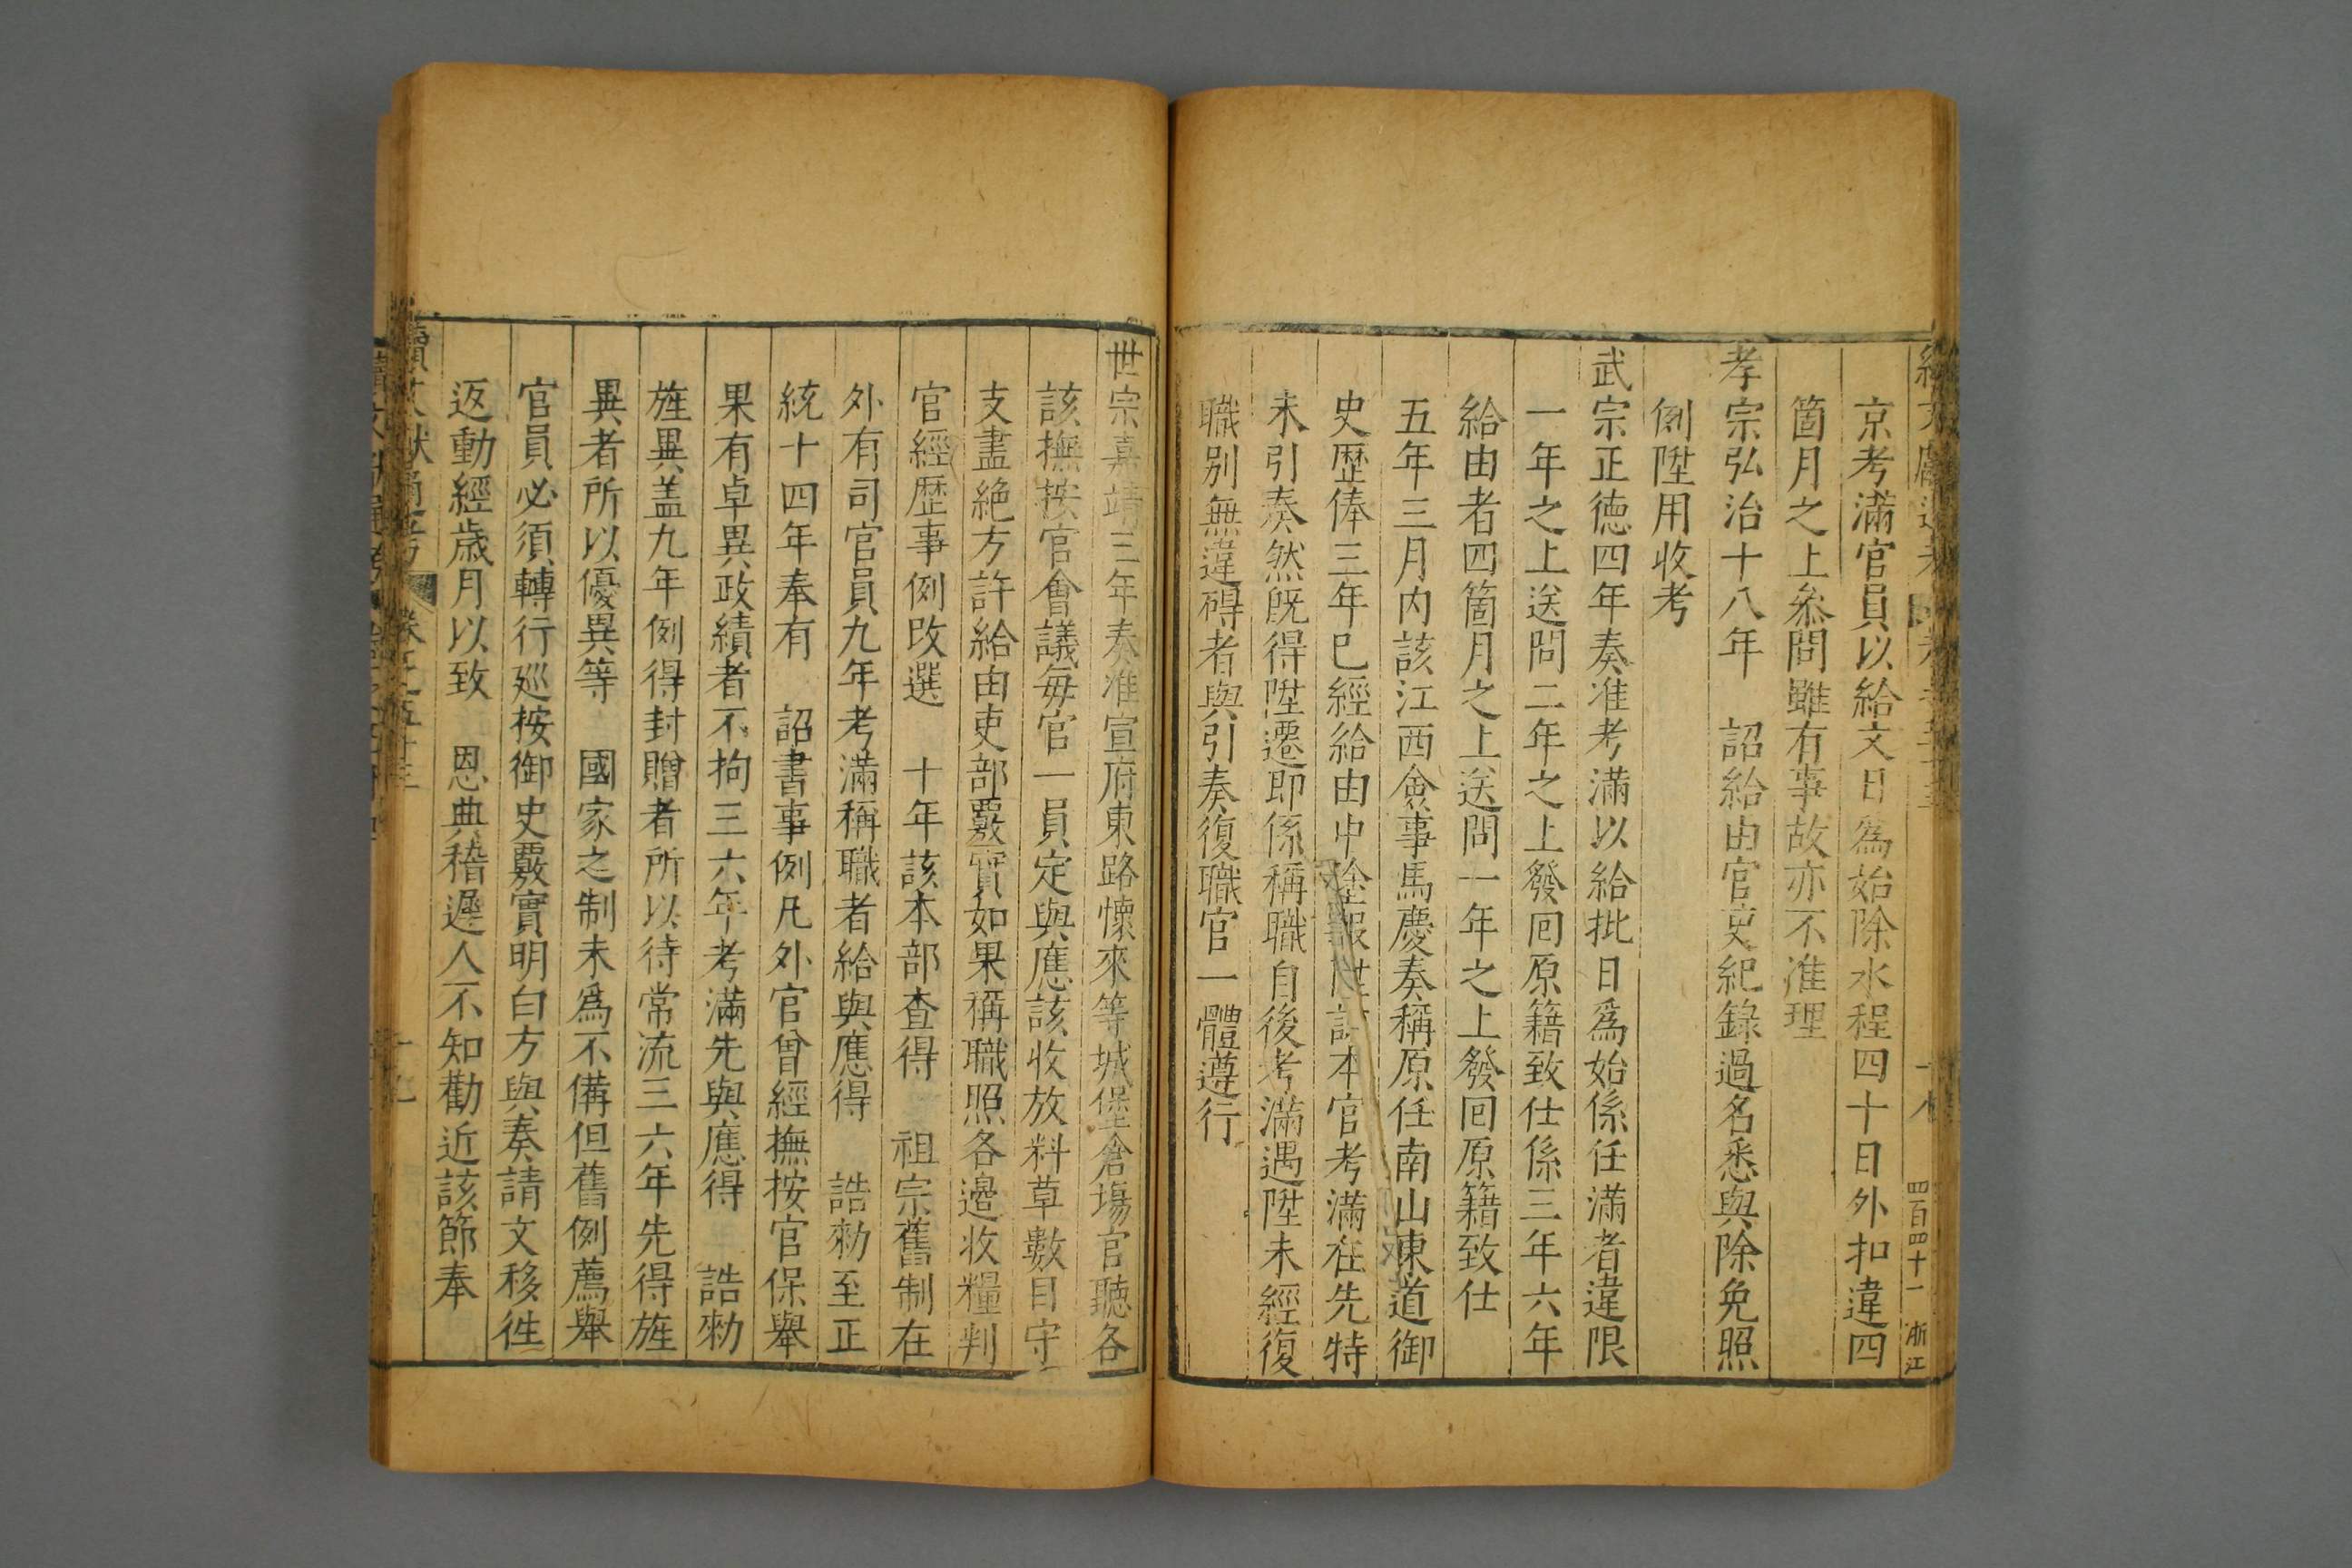 京考滿官員以給文日爲始除水程四十日外扣違四
箇月之上叅問雖有事故亦不准理
孝宗弘治十八年 詔給由官吏紀錄過名悉與除免照
例陞用收考
武宗正德四年奏准考滿以給批日爲始係任滿者違限
一年之上送問二年之上發回原籍致仕係三年六年
給由者四箇月之上送問一年之上發回原籍致仕
五年三月內該江西僉事馬慶奏稱原任南山東道御
史歷俸三年已經給由中途報陞該本官考滿在先特
未引奏然旣得陞遷即係稱職自後考滿遇陞未經復
職別無違碍者與引奏復職官一體遵行
十八
四百四十一 浙江
世宗嘉靖三年奏准宣府東路懷來等城堡倉塲官聽各
該撫按官會議每官一員定與應該收放料草數目守
支盡絶方許給由吏部覈實如果稱職照各邊收糧判
官經歷事例改選 十年該本部查得 祖宗舊制在
外有司官員九年考滿稱職者給與應得 誥勑至正
統十四年奉有 詔書事例凡外官曾經撫按官保舉
果有卓異政績者不拘三六年考滿先與應得 誥勑
旌異盖九年例得封贈者所以待常流三六年先得旌
異者所以優異等 國家之制未爲不備但舊例薦舉
官員必須轉行廵按御史覈實明白方與奏請文移徃
返動經歲月以致 恩典稽遲人不知勸近該節奉
續文獻通考 卷之五十三
十九